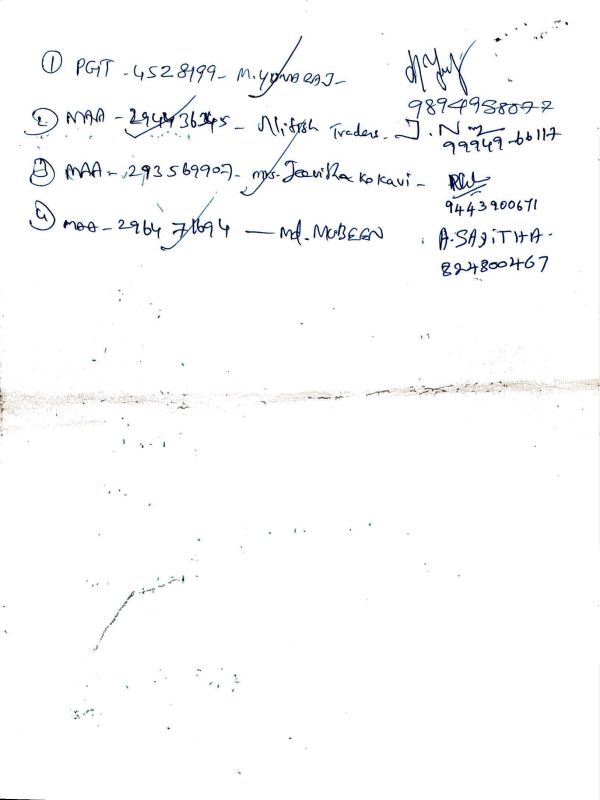 ① PGT - 4528199 - M. YUVARAJ -
9894958077
② MAA - 294436345 - Nitish Traders - J. N
99949-66117
③ MAA - 293569907 - Mrs. Jeevitha kokavi -
9443900671
④ MAA - 296471694 — Md. MUBEEN A. SAJITHA -
824800467